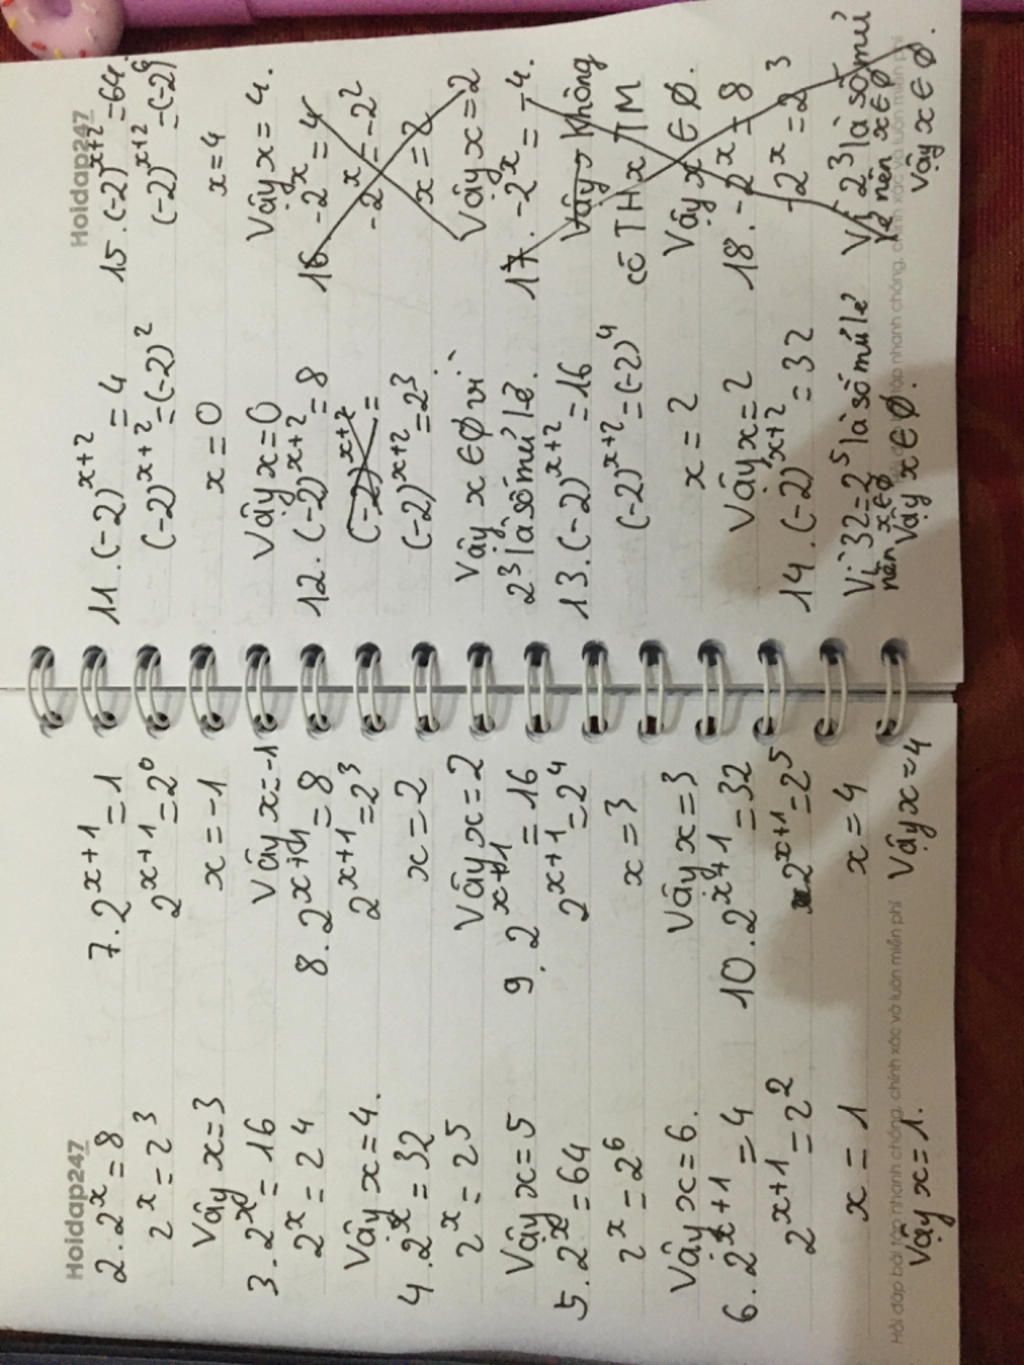 Hoidap247
2. 2^x = 8
2^x = 2^3
Vậy x = 3
3. 2^x = 16
2^x = 2^4
Vậy x = 4.
4. 2^x = 32
2^x = 2^5
Vậy x = 5
5. 2^x = 64
2^x = 2^6
Vậy x = 6.
6. 2^{x+1} = 4
2^{x+1} = 2^2
x = 1
Vậy x = 1.
7. 2^{x+1} = 1
2^{x+1} = 2^0
x = -1
Vậy x = -1
8. 2^{x+1} = 8
2^{x+1} = 2^3
x = 2
Vậy x = 2
9. 2^{x+1} = 16
2^{x+1} = 2^4
x = 3
Vậy x = 3
10. 2^{x+1} = 32
2^{x+1} = 2^5
x = 4
Vậy x = 4
Hỏi đáp bài tập nhanh chóng, chính xác và luôn miễn phí
Hoidap247
11. (-2)^{x+2} = 4
(-2)^{x+2} = (-2)^2
x = 0
Vậy x = 0
12. (-2)^{x+2} = 8
(-2)^{x+2} =
(-2)^{x+2} = 2^3
Vậy x ∈ Ø vì:
2^3 là số mũ lẻ.
13. (-2)^{x+2} = 16
(-2)^{x+2} = (-2)^4
x = 2
Vậy x = 2
14. (-2)^{x+2} = 32
Vì 32 = 2^5 là số mũ lẻ
nên x ∈ Ø
Vậy x ∈ Ø.
15. (-2)^{x+2} = 64.
(-2)^{x+2} = (-2)^6
x = 4
Vậy x = 4.
16. -2^x = 4
-2^x = -2^2
x = 2
Vậy x = 2
17. -2^x = -4.
Vậy không
có TH x TM
Vậy x ∈ Ø.
18. -2^x = 8
-2^x = 2^3
Vì 2^3 là số mũ
lẻ nên x ∈ Ø
Vậy x ∈ Ø.